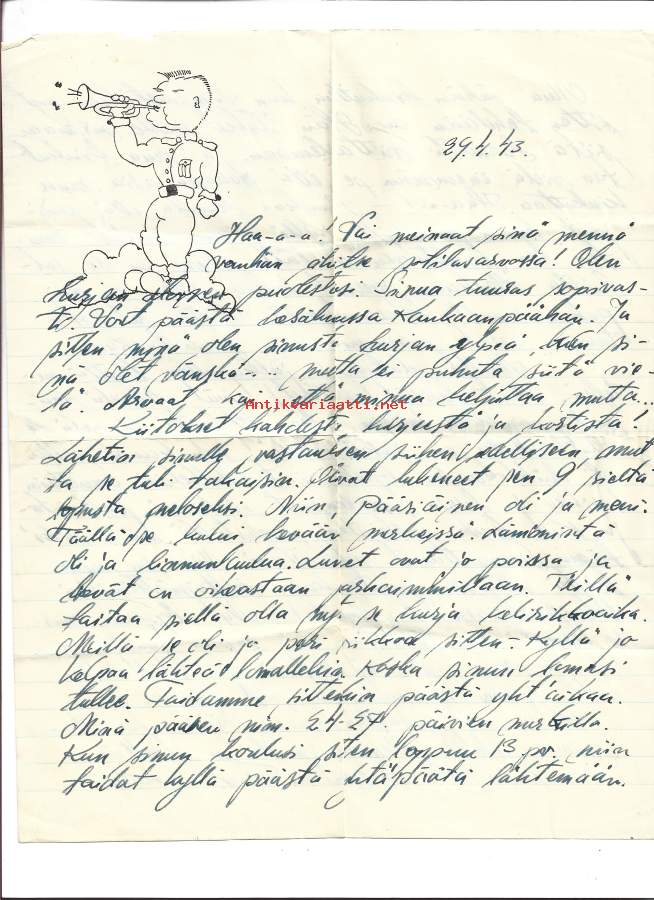 29.4.43.
Haa-a-a! Vai meinaat sinä mennä
vanhan absilla Olen
kurjan puolestasi. Sinua sopivas-
ti. Voit päästä kesäkuussa Kankaanpäähän. Ja
sitten minä olen sinusta kurjan ylpeä, kun si-
nä olet vänskä-... mutta ei puhuta siitä vie-
lä. Arvaat kai, että minua mutta...
Kiitokset kahdesta kirjeestä ja kortista!
Lähetin sinulle vastauksen siihen edelliseen, mut-
ta se tuli takaisin. Olivat lukeneet sen 9 sieltä
lopusta neloseksi. Niin Pääsiäinen oli ja meni.
Täällä se kului kevään merkeissä. Lämmintä
oli ja linnunlaulua. Lumet ovat jo poissa ja
kevät on oikeastaan parhaimmillaan. Teillä
taitaa siellä olla nyt se kurja kelirikkoaika.
Meillä se oli jo pari viikkoa sitten. Kyllä jo
kelpaa lähteä lomallekin. Koska sinun lomasi
tullee. Taidamme sittenkin päästä yht'aikaa.
Minä pääsen nim. 24-27. päivien
Kun sinun koulusi siten loppuu 13 pv, niin
taidat kyllä päästä yhtäpäätä lähtemään.
Antikvariaatti.net